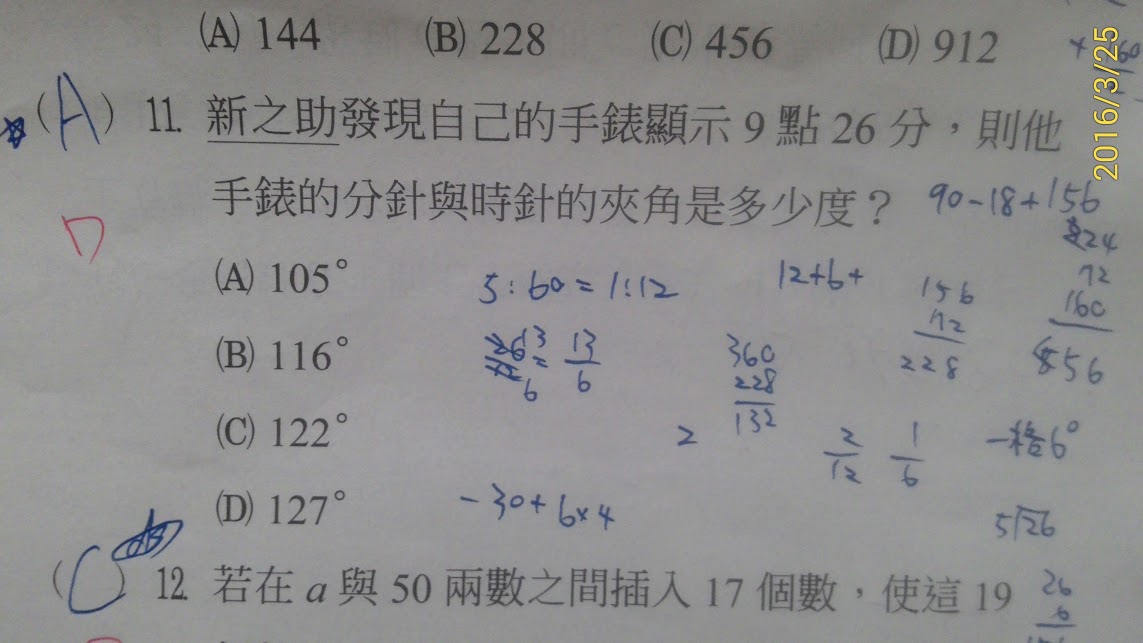 (A) 144 (B) 228 (C) 456 (D) 912
2016/3/25
(A) 11. 新之助發現自己的手錶顯示 9 點 26 分，則他
手錶的分針與時針的夾角是多少度？ 90-18+156
D
(A) 105° 5:60=1:12 12+6+
156
72
228
24
72
160
56
(B) 116° 13
6
= 13/6
360
228
132
(C) 122° 2 2/12 1/6 一格6°
(D) 127° -30+6×4 5√26
(C) 12. 若在 a 與 50 兩數之間插入 17 個數，使這 19
26
6